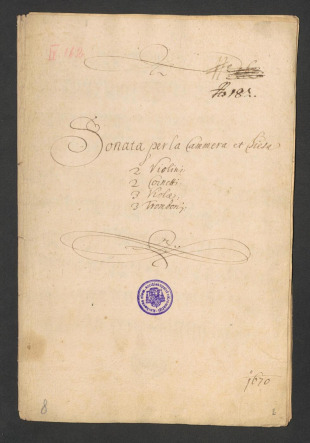 IV. 168
No 182.
Sonata per la Cammera et Chiesa
2 Violini
2 Cornetti
3 Viole
3 Tromboni
1670
8
1